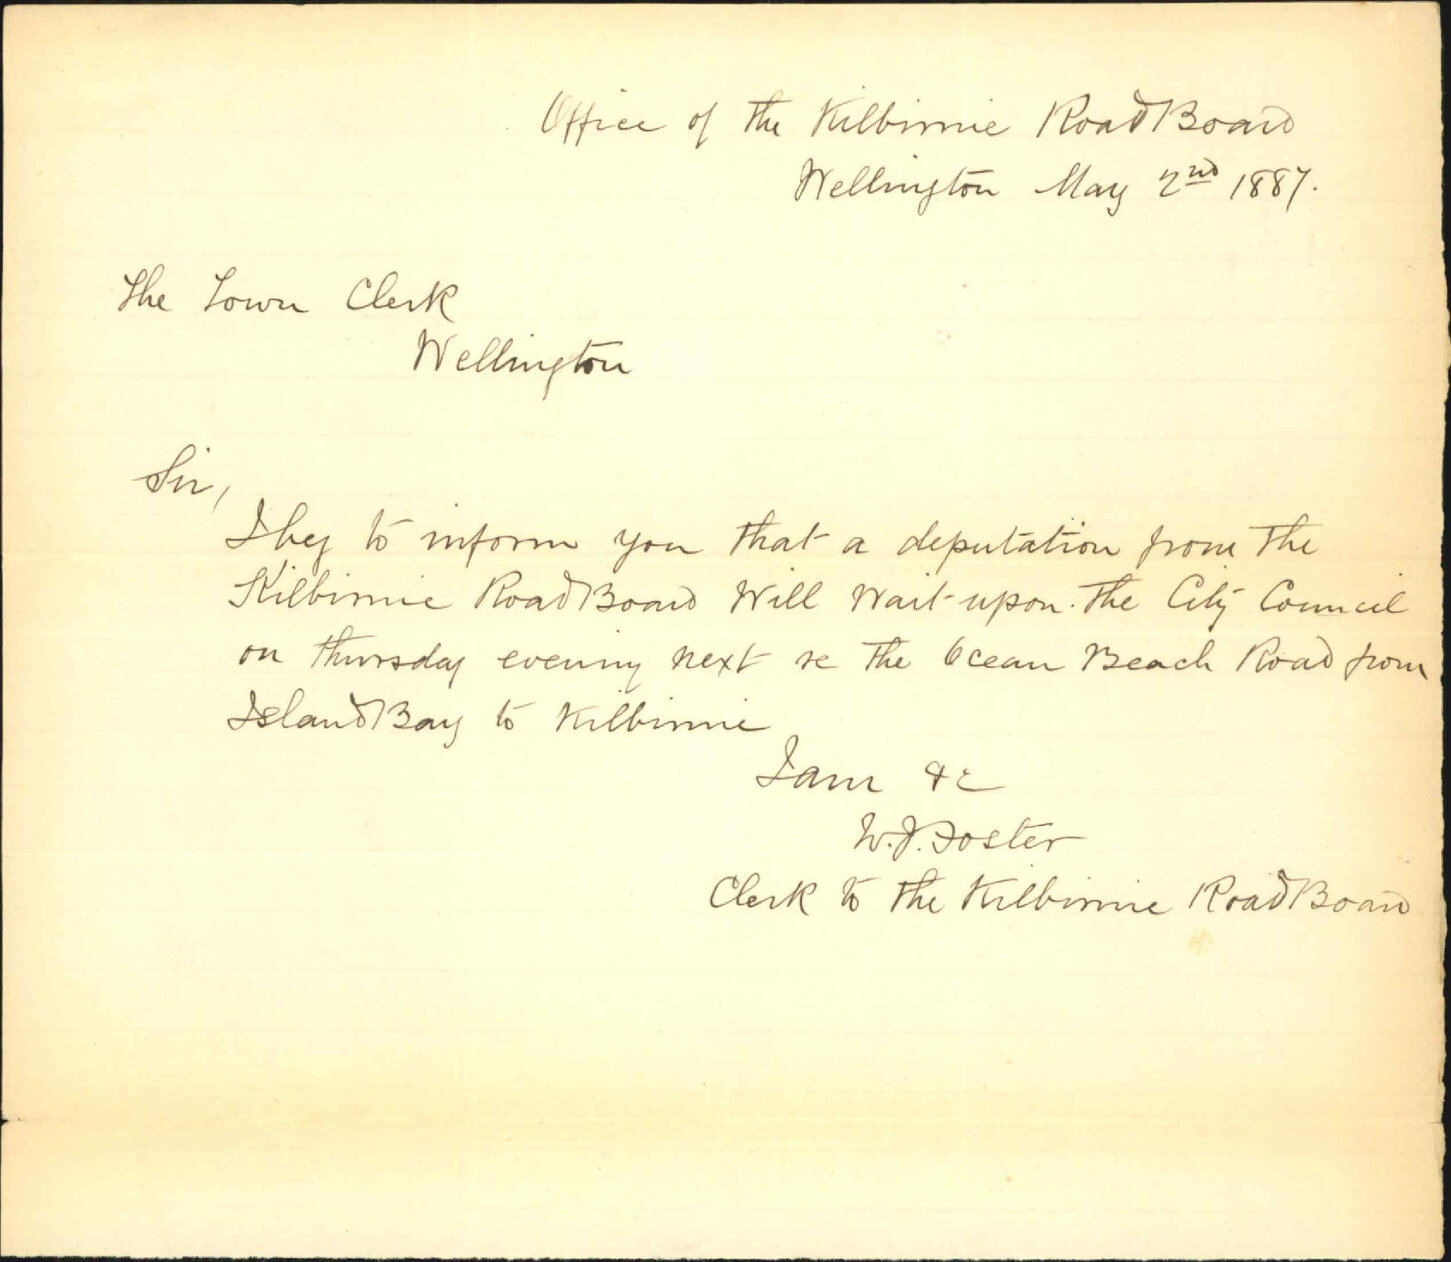 Office of the Kilbirnie Road Board
Wellington May 2nd 1887.
The Town Clerk
Wellington
Sir,
I beg to inform you that a deputation from the
Kilbirnie Road Board Will Wait upon the City Council
on thursday evening next re the Ocean Beach Road from
Island Bay to Kilbirnie
I am &c
W.J. Foster
Clerk to the Kilbirnie Road Board